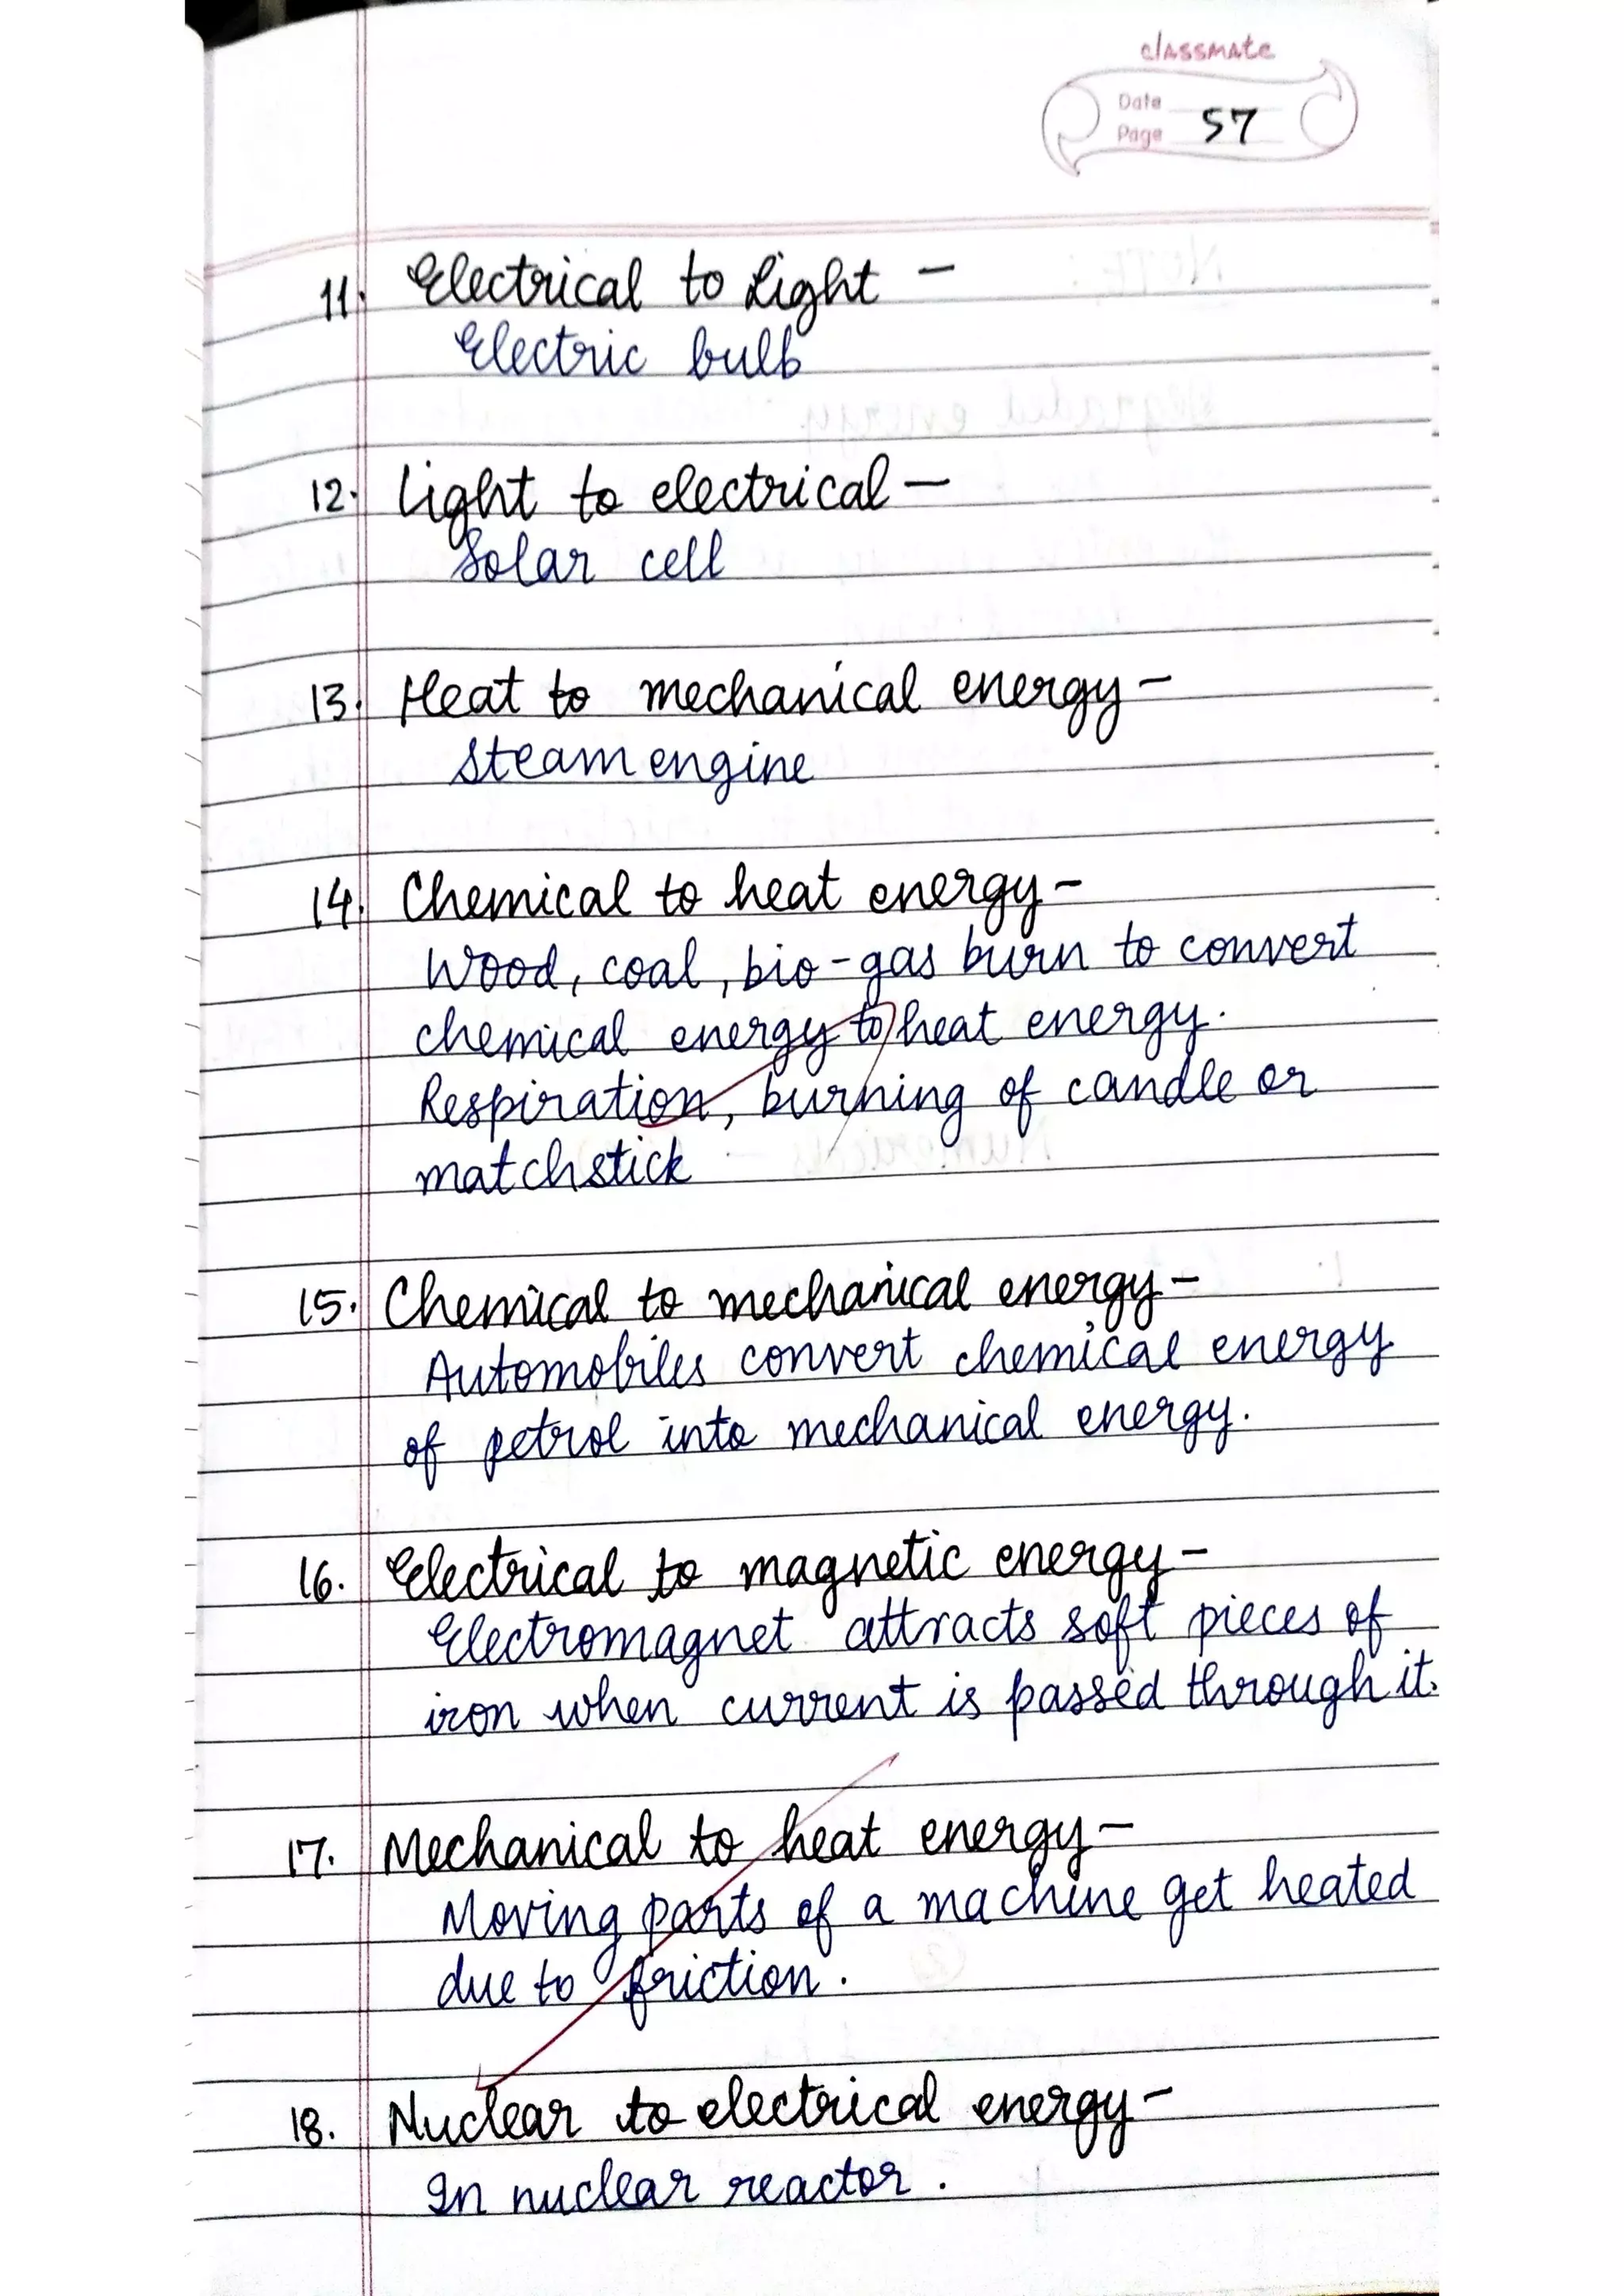 classmate
Date
Page 57
11. Electrical to Light -
Electric bulb
12. Light to electrical -
Solar cell
13. Heat to mechanical energy -
Steam engine
14. Chemical to heat energy -
Wood, coal, bio-gas burn to convert
chemical energy to heat energy.
Respiration, burning of candle or
matchstick
15. Chemical to mechanical energy -
Automobiles convert chemical energy
of petrol into mechanical energy.
16. Electrical to magnetic energy -
Electromagnet attracts soft pieces of
iron when current is passed through it.
17. Mechanical to heat energy -
Moving parts of a machine get heated
due to friction.
18. Nuclear to electrical energy -
In nuclear reactor.